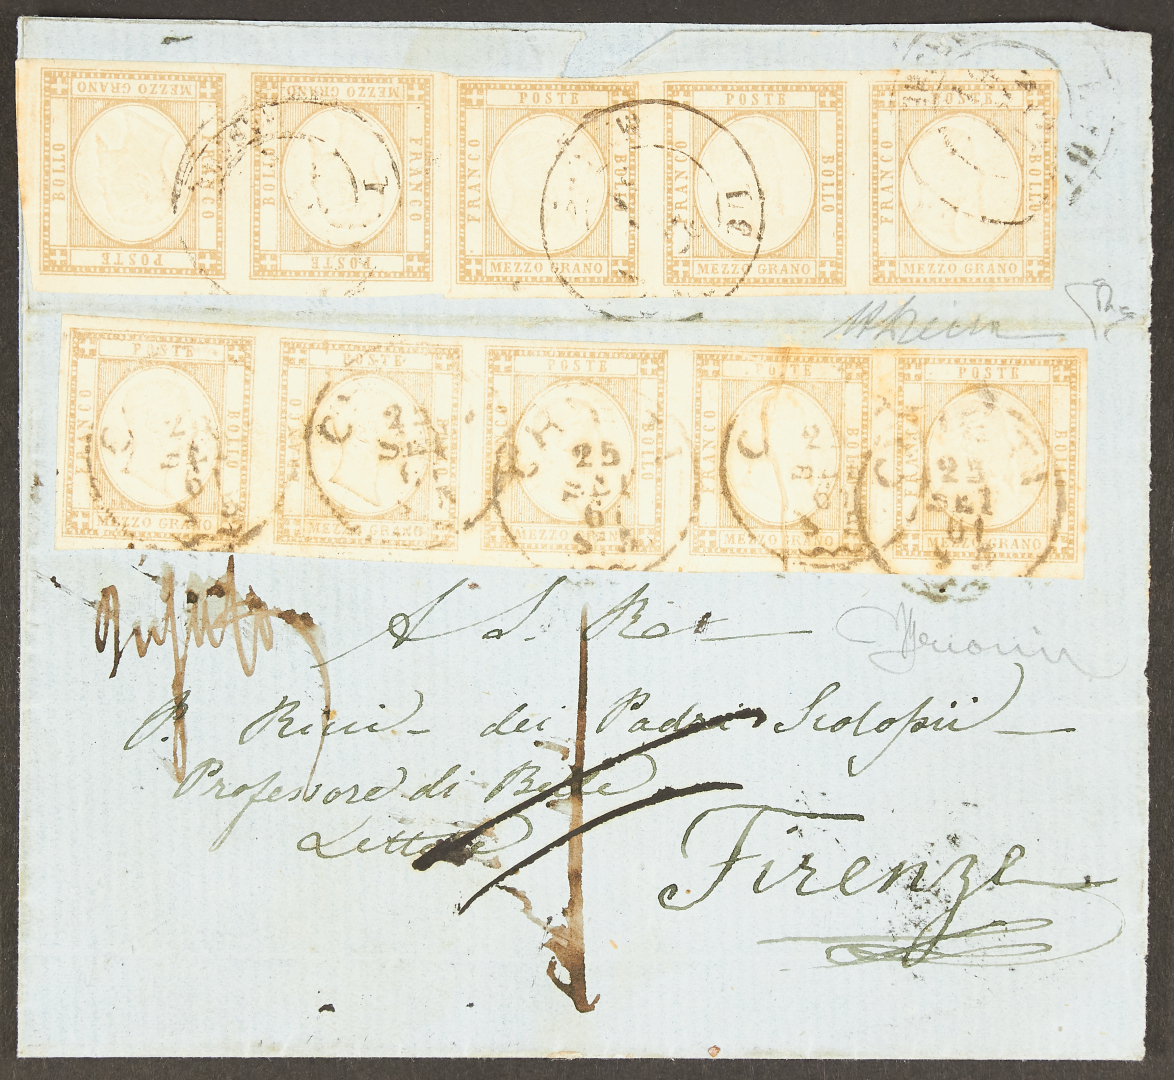 MEZZO GRANO MEZZO GRANO POSTE POSTE POSTE
BOLLO FRANCO BOLLO FRANCO FRANCO BOLLO FRANCO BOLLO FRANCO BOLLO
POSTE POSTE MEZZO GRANO MEZZO GRANO MEZZO GRANO
POSTE POSTE POSTE POSTE POSTE
FRANCO BOLLO FRANCO BOLLO FRANCO BOLLO FRANCO BOLLO FRANCO BOLLO
25
SET
61
MEZZO GRANO MEZZO GRANO MEZZO GRANO MEZZO GRANO MEZZO GRANO
Rifiutato
A S. Rev
P. Ricci dei Padri Scolopii
Professore di Belle
Lettere
Firenze